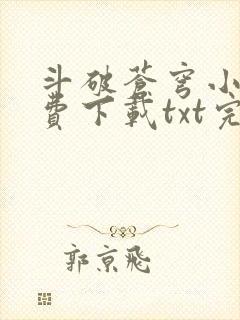 斗破苍穹小
费下载txt完
郭京飛